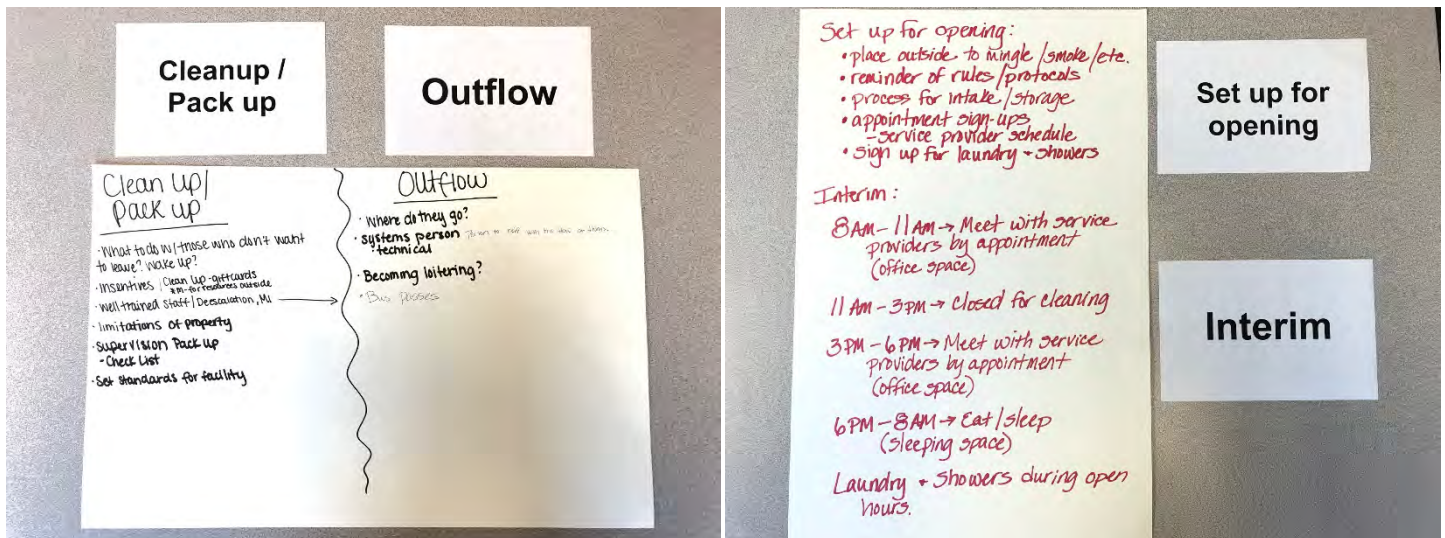 Cleanup /
Pack up
Outflow
Clean Up/
Pack up
·What to do w/those who don't want
to leave? Wake up?
·Insentives /Clean Up-giftcards
*M-for resources outside
·Well-trained Staff/Deescalation, MI
·limitations of property
·Supervision Pack up
-Check List
·Set standards for facility
Outflow
·Where do they go?
·Systems person
·technical
·Becoming loitering?
·Bus Passes
Set up for opening:
·place outside to mingle/smoke/etc.
·reminder of rules/protocols
·process for intake/storage
·appointment sign-ups
-service provider schedule
·Sign up for laundry + showers
Interim:
8AM-11AM→Meet with service
providers by appointment
(office space)
11AM-3PM→Closed for cleaning
3PM-6PM→Meet with service
providers by appointment
(office space)
6PM-8AM→Eat/sleep
(sleeping space)
Laundry + Showers during open
hours.
Set up for
opening
Interim